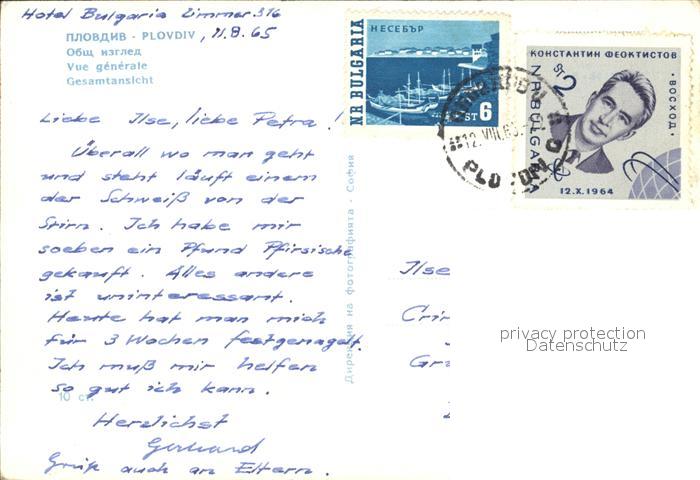 Hotel Bulgaria Zimmer 316
ПЛОВДИВ - PLOVDIV, 11.8.65
Общ изглед
Vue générale
Gesamtansicht
Liebe Ilse, liebe Petra!
Überall wo man geht
und steht läuft einem
der Schweiß von der
Stirn. Ich habe mir
soeben ein Pfund Pfirsische
gekauft. Alles andere
ist uninteressant.
Heute hat man mich
für 3 Wochen festgenagelt.
Ich muß mir helfen
so gut ich kann.
10 ст.
Herzlichst
Gerhard
Gruß auch an Eltern.
Дирекция на фотографията - София
НЕСЕБЪР
NR BULGARIA
ST 6
КОНСТАНТИН ФЕОКТИСТОВ
ST 2
NR BULGARIA
·ВОСХОД·
12.X.1964
12.VIII.65
PLOVDIV
Ilse
privacy protection
Datenschutz